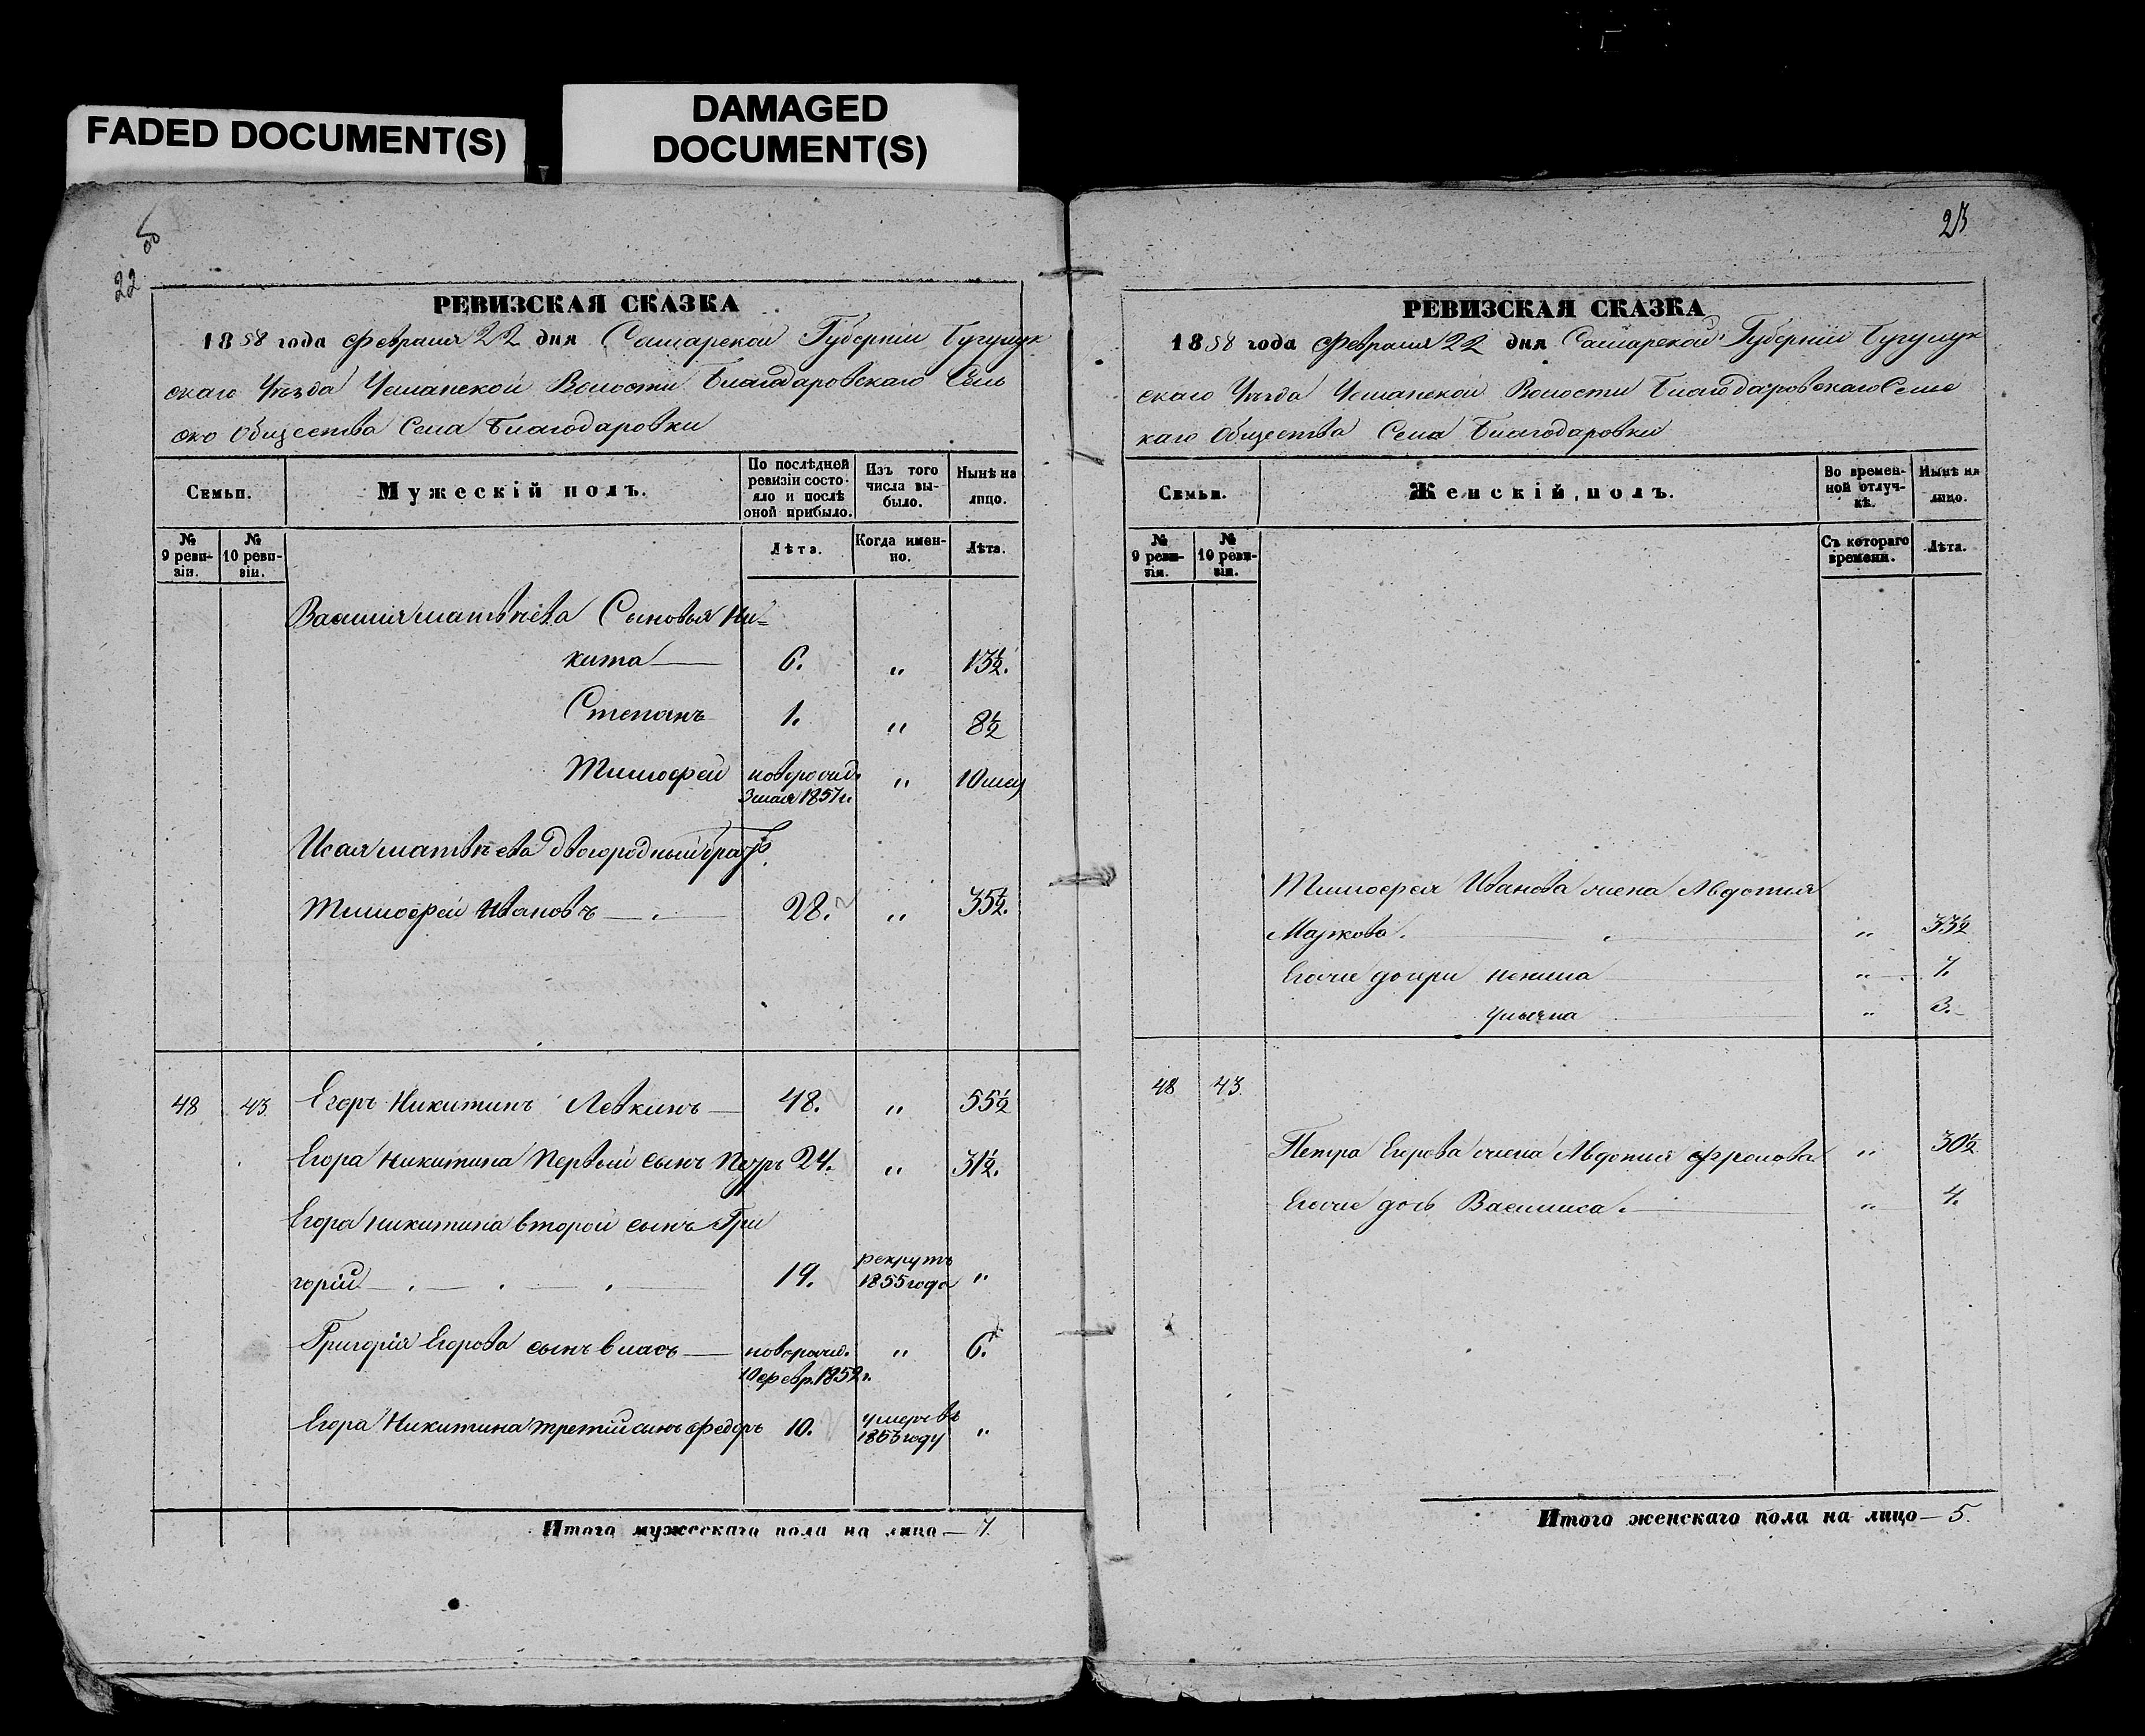 FADED DOCUMENT(S)
DAMAGED
DOCUMENT(S)
22
об
РЕВИЗСКАЯ СКАЗКА
1858 года Февраля 22 дня Самарской Губерніи Бугульм
скаго Уѣзда Волости Благодаровскаго Сель
ско Общества Села Благодаровки
Семьи.
Мужескій полъ.
По послѣдней ревизіи состояло и послѣ оной прибыло.
Изъ того числа выбыло.
Нынѣ на лицо.
№ 9 ревизіи.
№ 10 ревизіи.
Лѣта.
Когда именно.
Лѣта.
Василия матвѣева Сыновья Ни=
кита 6. „ 13½.
Степанъ 1. „ 8½
Тимофей новорожд. „ 10 мес
3 мая 1857 г.
Исая матвѣева двоюродный братъ
Тимофей Ивановъ 28. „ 35½.
48 43 Егоръ Никитинъ Левкинъ 48. „ 55½
Егора Никитина Первый сынъ Петръ 24. „ 31½.
Егора Никитина второй сынъ Гри
горій 19. рекрутъ 1855 года „
Григорія Егорова сынъ Власъ новорожд. „ 6.
10 февр. 1852 г.
Егора Никитина третій сынъ Федоръ 10. умеръ въ 1853 году „
Итого мужескаго пола на лицо — 7.
23
РЕВИЗСКАЯ СКАЗКА
1858 года Февраля 22 дня Самарской Губерніи Бугульм
скаго Уѣзда Волости Благодаровскаго Сельс
каго Общества Села Благодаровки
Семьи.
Женскій полъ.
Во временной отлучкѣ.
Нынѣ на лицо.
№ 9 ревизіи.
№ 10 ревизіи.
Съ котораго времени.
Лѣта.
Тимофея Иванова жена Авдотия
Маркова. „ 33½
Егоже дочери „ 7.
„ 3.
48 43
Петра Егорова жена Авдотия Фролова „ 30½
Егоже дочь Василиса. „ 4.
Итого женскаго пола на лицо — 5.